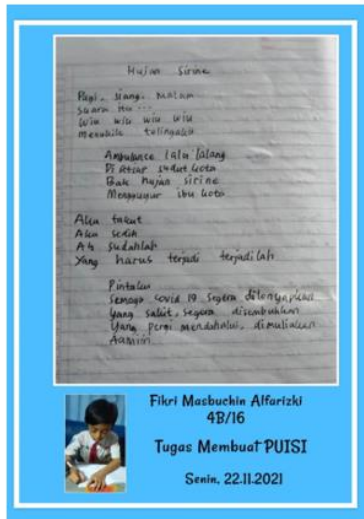 Hujan Sirine
Pagi, siang, malam
Suara itu ...
Wiu wiu wiu wiu
telingaku
Ambulance lalu lalang
Di setiap sudut kota
Bak hujan sirine
Mengguyur ibu kota
Aku takut
Aku sedih
Ah sudahlah
Yang harus terjadi terjadilah
Pintaku
Semoga covid 19 segera dilenyapkan
Yang sakit, segera disembuhkan
Yang pergi mendahului, dimuliakan
Aamiin
Fikri Masbuchin Alfarizki
4B/16
Tugas Membuat PUISI
Senin, 22.11.2021